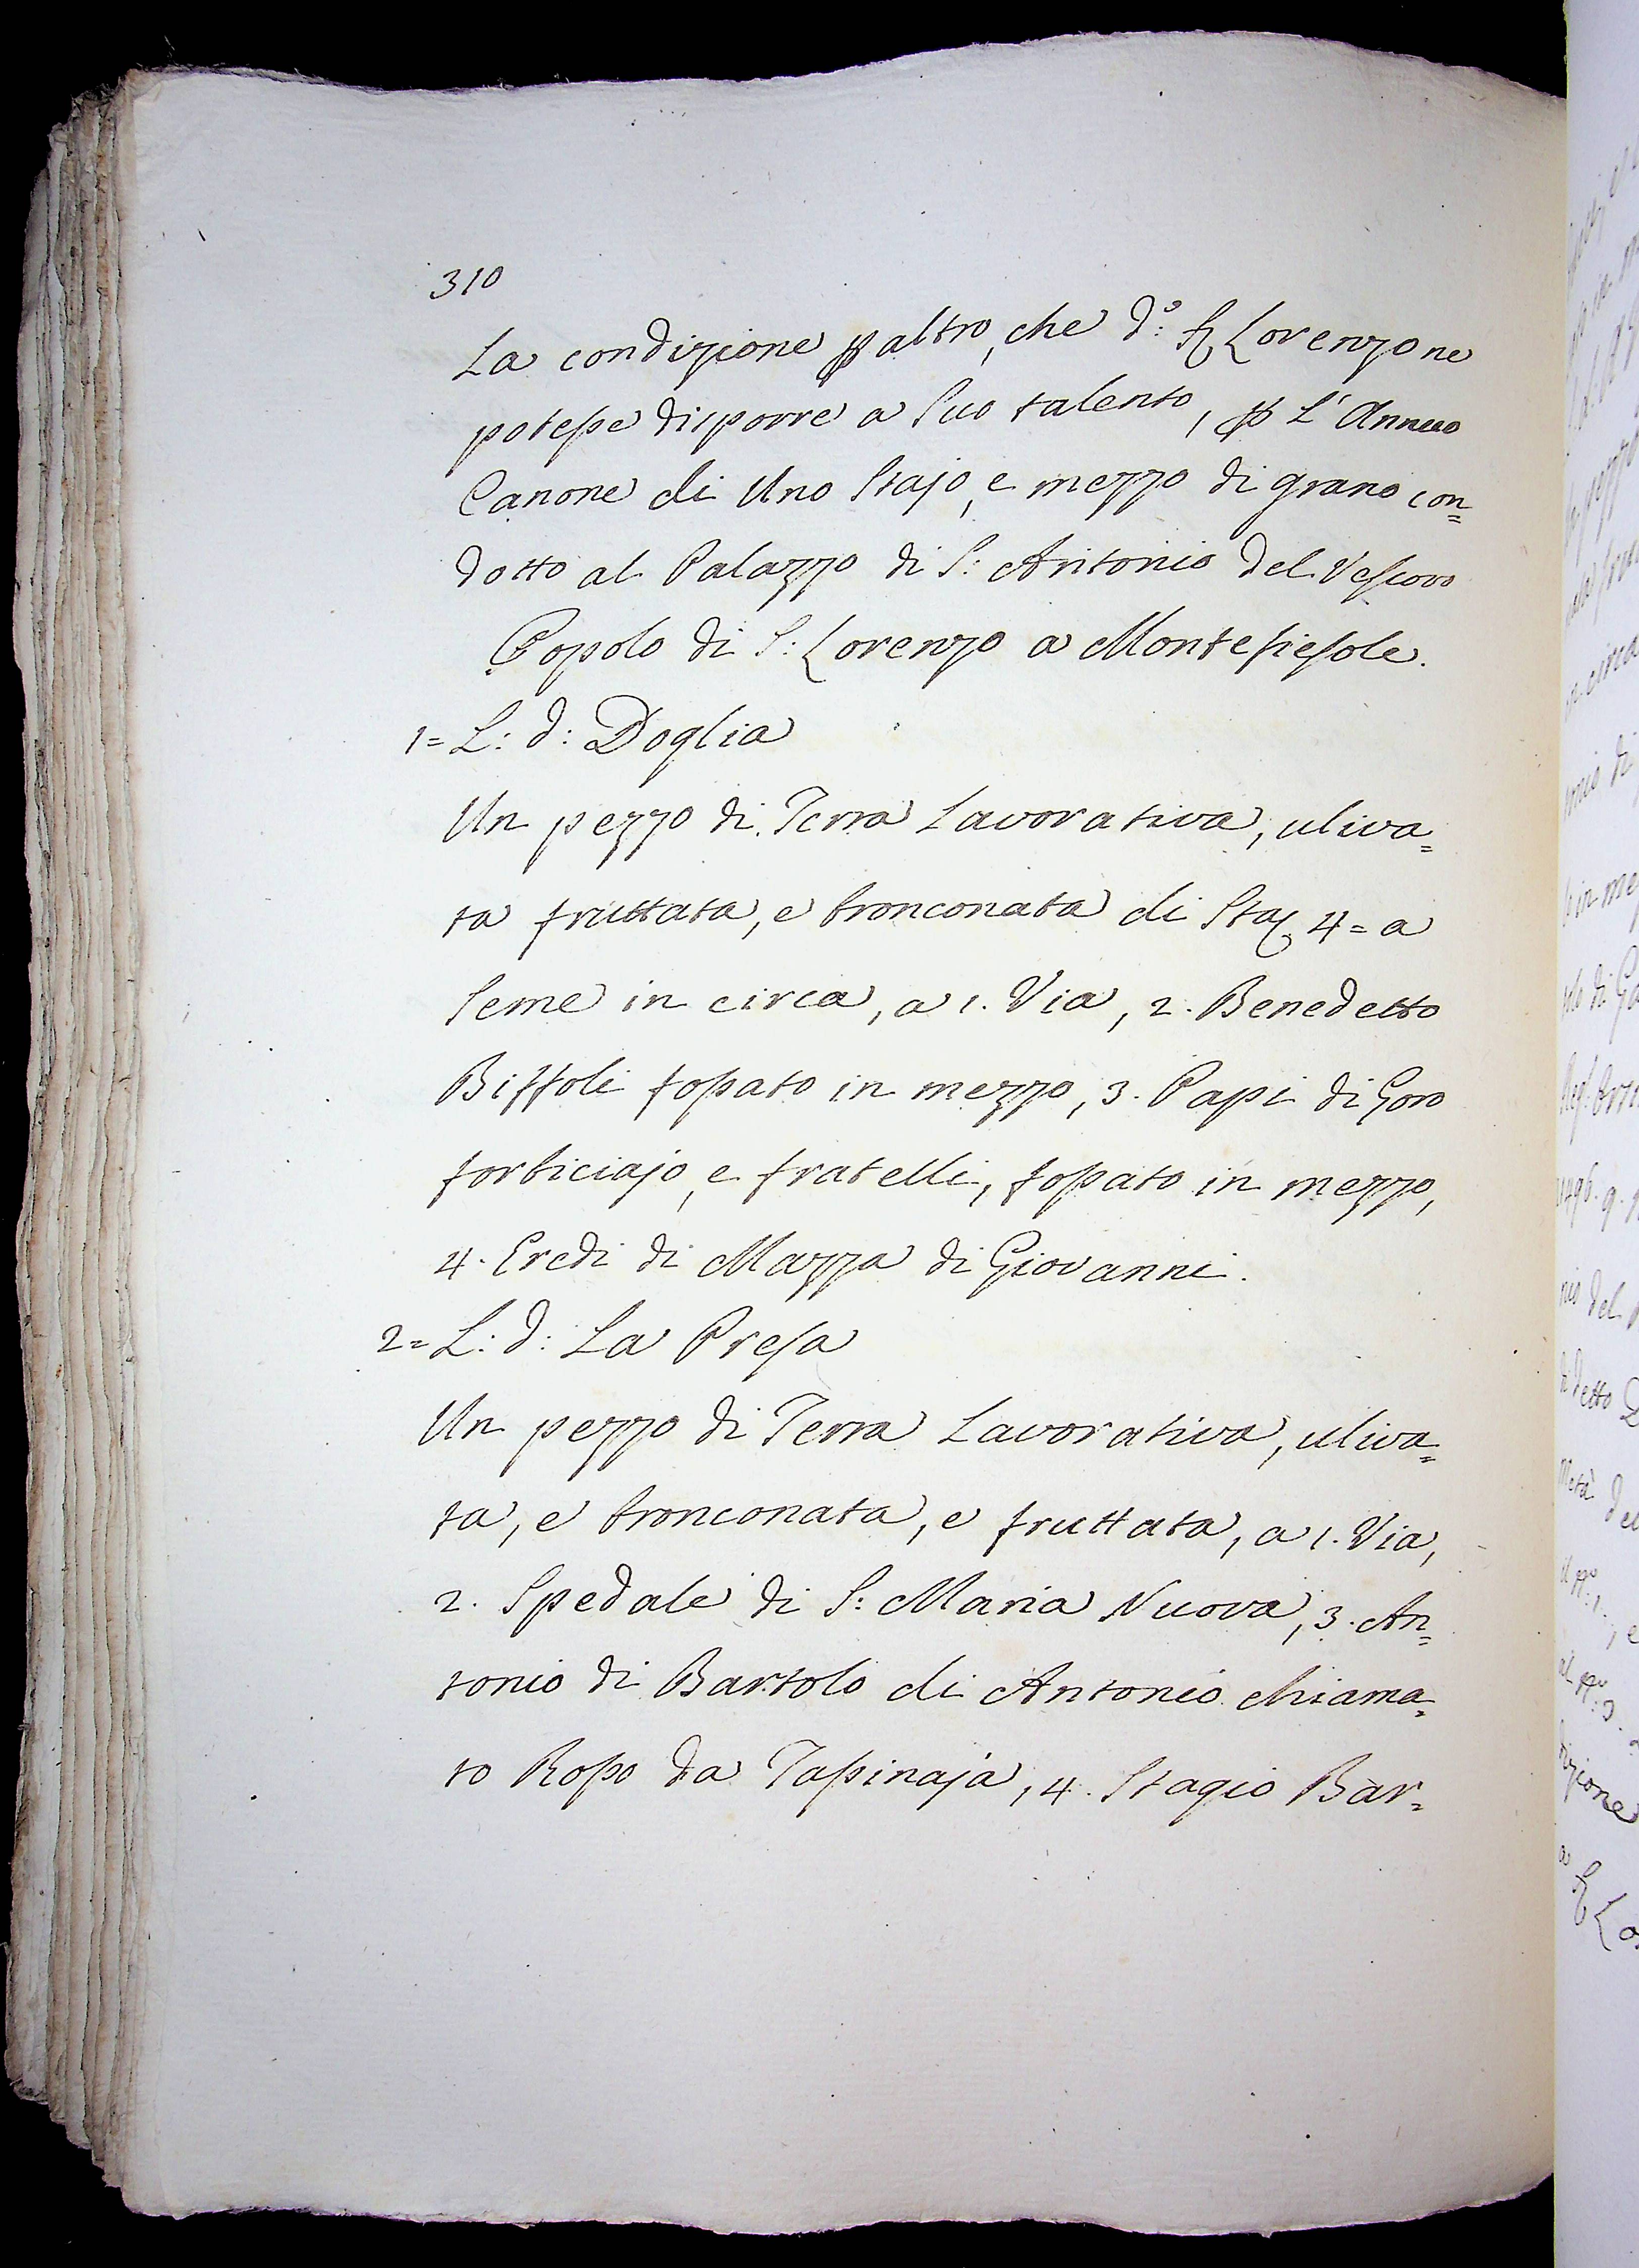 310
La condizione p altro, che d.° S. Lorenzo ne
potesse disporre a Suo talento, p L'Annuo
Canone di Uno Stajo, e mezzo di grano con=
dotto al Palazzo di S: Antonio del Vescovo
Popolo di S: Lorenzo a Montefiesole.
1= L: d: Doglia
Un pezzo di Terra Lavorativa, uliva=
ta fruttata, e bronconata di Sta. 4= a
Seme in circa, a 1. Via, 2. Benedetto
Biffoli fossato in mezzo, 3. Papi di Goro
forbiciajo, e fratelli, fossato in mezzo,
4. Eredi di Mazza di Giovanni.
2= L: d: La Presa
Un pezzo di Terra Lavorativa, uliva=
ta, e bronconata, e fruttata, a 1. Via,
2. Spedale di S: Maria Nuova, 3. An=
tonio di Bartolo di Antonio chiama=
to Rosso da Tassinaja, 4. Stagio Bar=